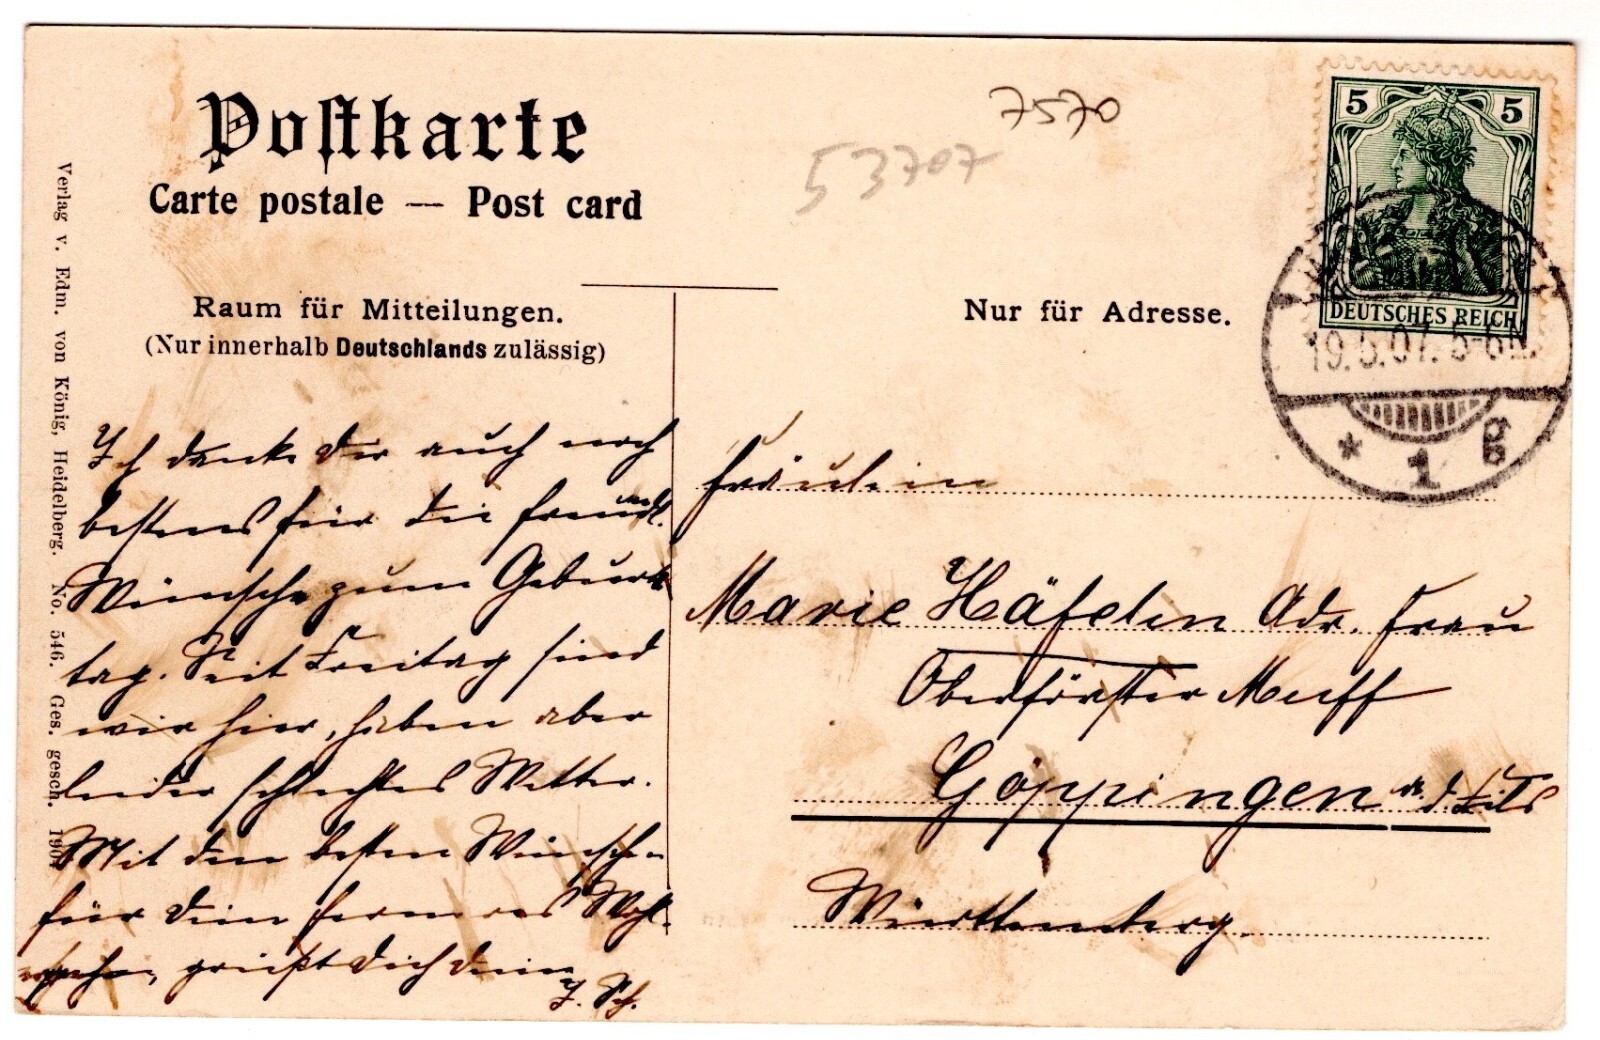 Postkarte
Carte postale — Post card
7570
53707
5 5
DEUTSCHES REICH
19.5.07. 5-6N.
* 1 g
B
Raum für Mitteilungen.
(Nur innerhalb Deutschlands zulässig)
Nur für Adresse.
Verlag v. Edm. von König, Heidelberg. No. 546. Ges. gesch. 1907
Ich danke Dir auch noch
bestens für die freundl.
Wünsche zum Geburts
tag. Seit Freitag sind
wir hier, haben aber
leider schlechtes Wetter.
Mit den besten Wünschen
für Dein ferneres Wohl-
ergehen, grüßt Dich Deine
J. Sch.
Fräulein
Marie Häfelin Adr. Frau
Oberförster Muff
Göppingen a. d. Fils
Württemberg.